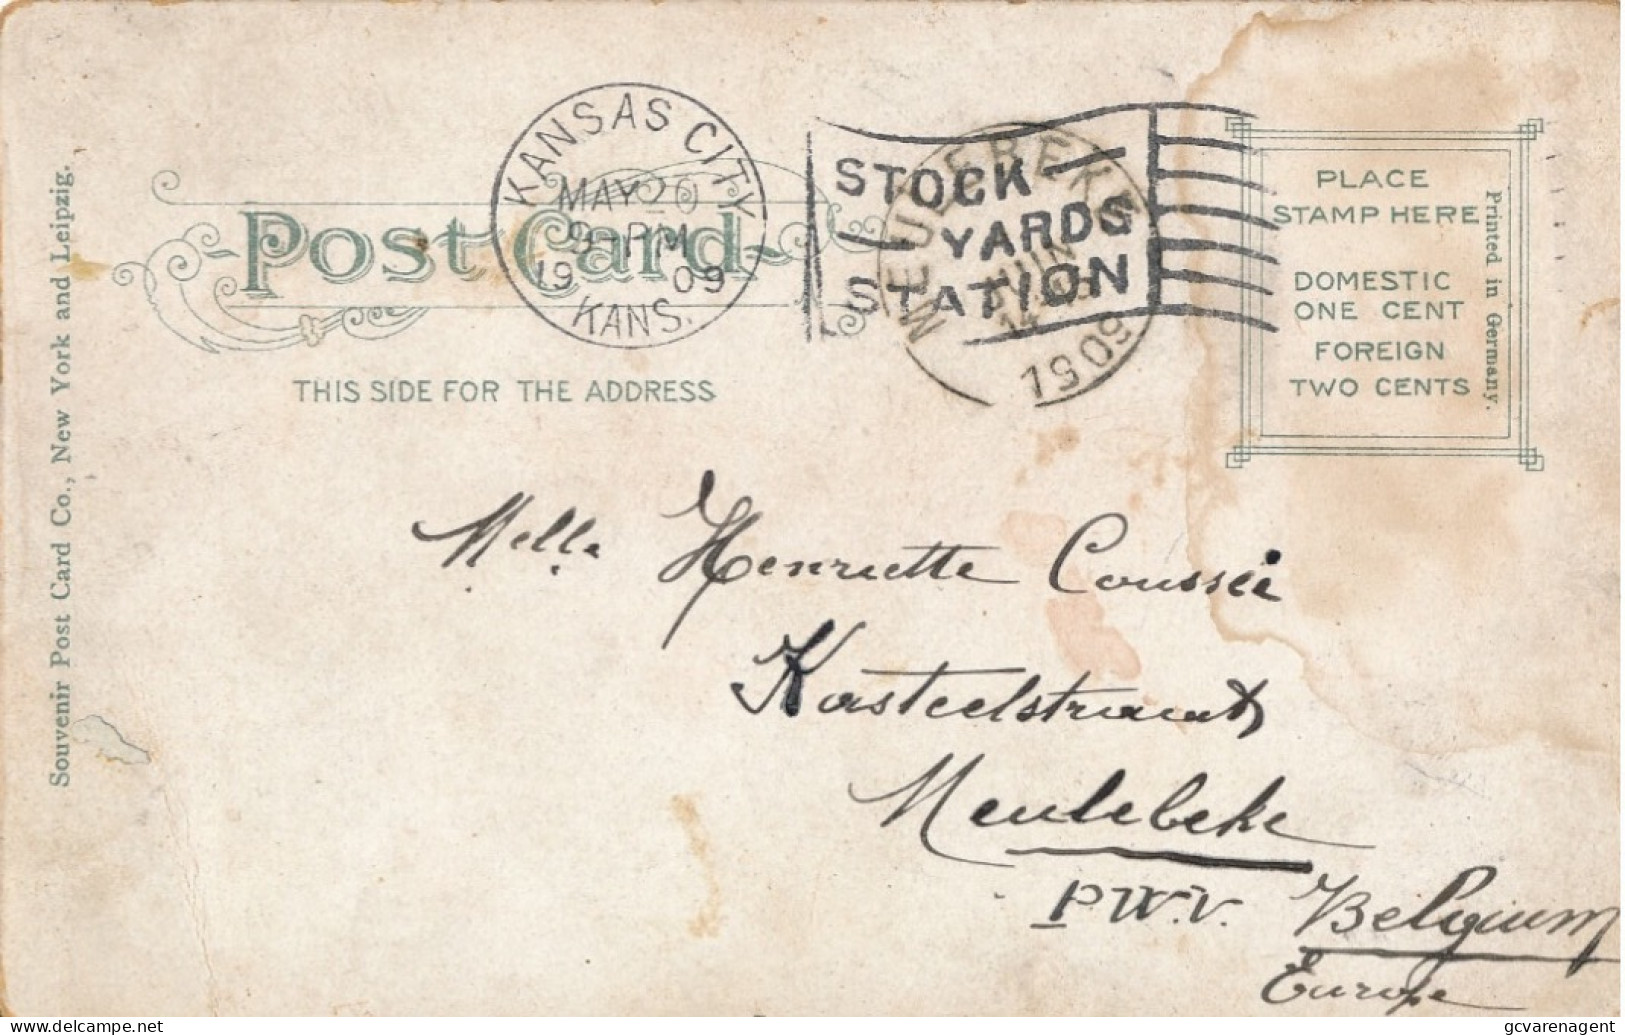 Souvenir Post Card Co., New York and Leipzig.
Post Card
THIS SIDE FOR THE ADDRESS
KANSAS CITY
MAY 20
9-PM
19 09
KANS.
STOCK
YARDS
STATION
MEULEBEKE
JUIN
1909
PLACE
STAMP HERE
DOMESTIC
ONE CENT
FOREIGN
TWO CENTS
Printed in Germany.
Melle Henriette Coussée
Kasteelstraat
Meulebeke
P.W.V. Belgium
Europe
gcvarenagent
www.delcampe.net